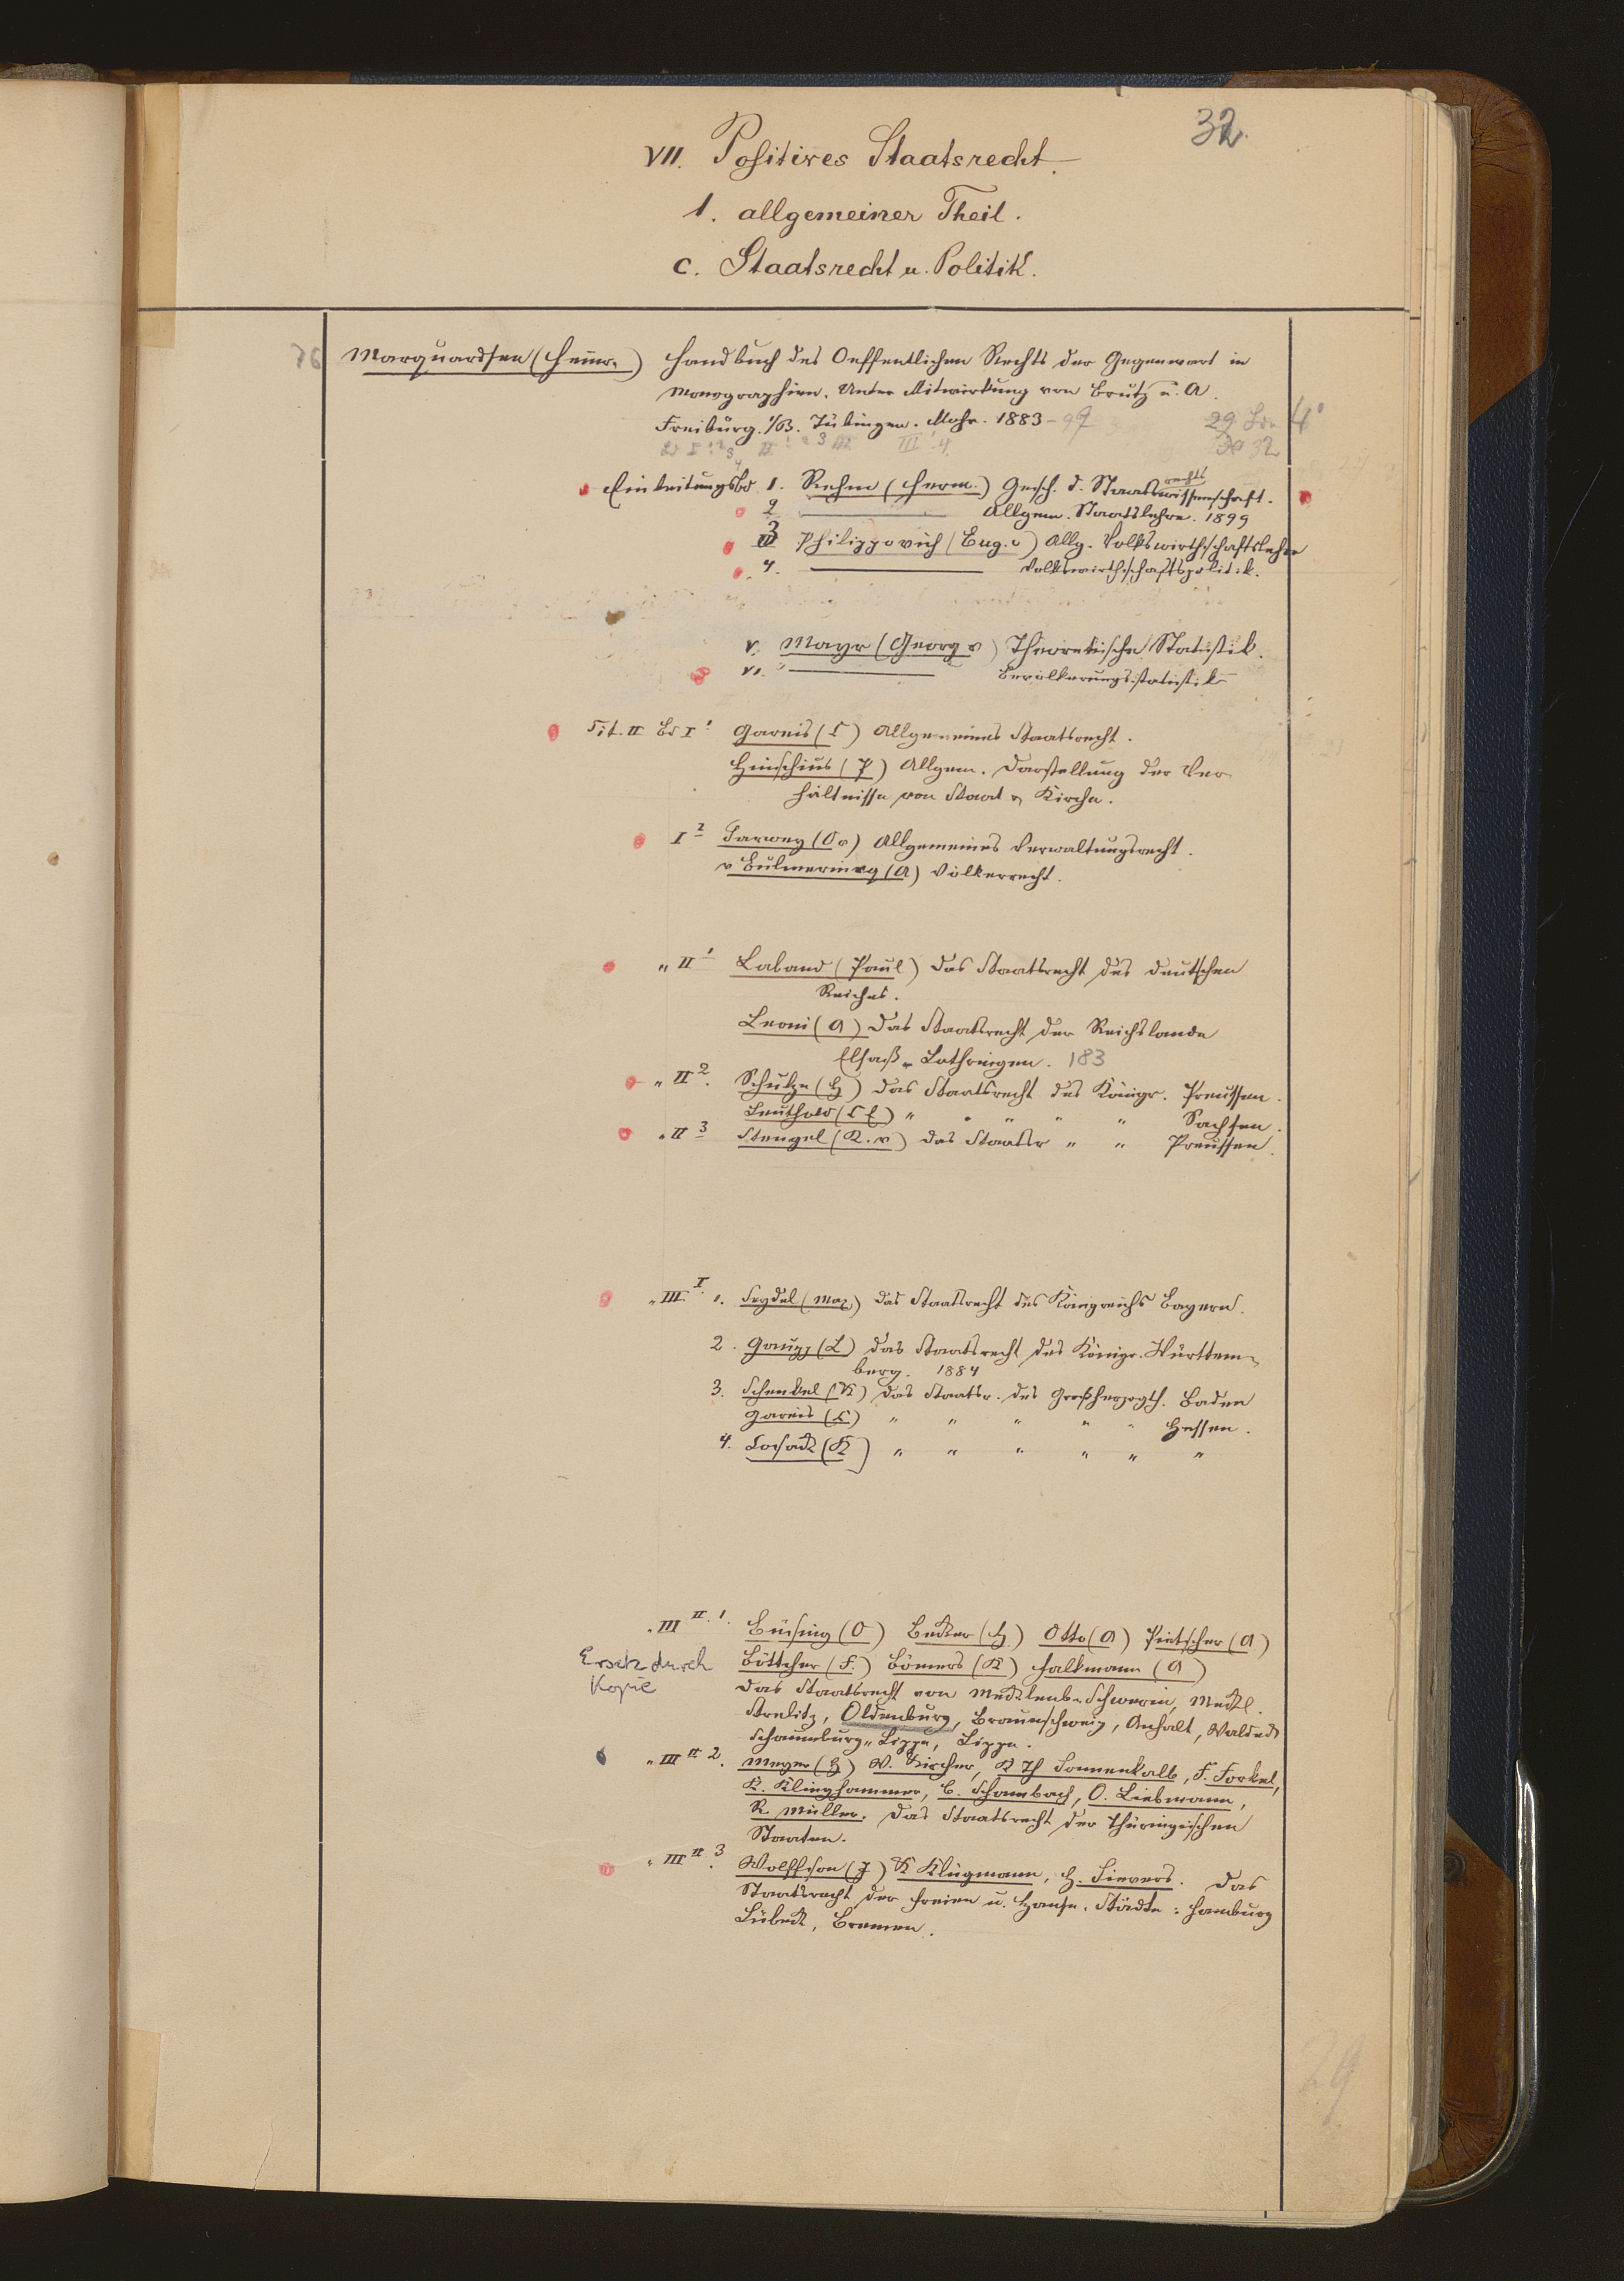 32.
VII. Positives Staatsrecht.
1. allgemeiner Theil.
c. Staatsrecht u. Politik.
76 Marquardsen (Heinr.) Handbuch des Oeffentlichen Rechts der Gegenwart in
Monographien. Unter Mitwirkung von Brutz u. A.
Freiburg. i/B. Tübingen. Mohr. 1883-97 29 Bde 4°
32
Einleitungsbd. 1. Rehm (Herm.) Gesch. d. Staatsrechtswissenschaft.
2 Allgem. Staatslehre. 1899
3 Philippovich (Eug. v) Allg. Volkswirthschaftslehre
4. Volkswirthschaftspolitik.
V. Mayr (Georg v) Theoretische Statistik.
VI. Bevölkerungsstatistik
Tit. II Bd I 1 Gareis (C) Allgemeines Staatsrecht.
Hinschius (P) Allgem. Darstellung der Ver-
hältnisse von Staat u. Kirche.
I 2 Sarwey (O v) Allgemeines Verwaltungsrecht.
v Bulmerincq (A) Völkerrecht.
" II 1 Laband (Paul) Das Staatsrecht des deutschen
Reiches.
Leoni (A) Das Staatsrecht der Reichslande
Elsaß-Lothringen. 183
" II 2. Schulze (H) Das Staatsrecht des Königr. Preussen.
Leuthold (C E) " " " " " Sachsen.
" II 3 Stengel (K. v) Das Staatsr " " Preussen.
" III I. 1. Seydel (Max) Das Staatsrecht des Königreichs Bayern.
2. Gaupp (L) Das Staatsrecht des Königr. Württem-
berg. 1884
3. Schenkel (K) Das Staatsr. des Großherzogth. Baden
Gareis (C) " " " " " Hessen.
4. Cosack (K) " " " " " "
" III II. 1. Büsing (O) Becker (H.) Otto (A) Pietscher (A)
Ersatz durch Böttcher (F.) Bömers (K) Falkmann (A)
Kopie Das Staatsrecht von Mecklenb-Schwerin, Meckl.
Strelitz, Oldenburg, Braunschweig, Anhalt, Waldeck
Schaumburg-Lippe, Lippe.
" III II 2. Meyer (G) W. Kircher, K Th Sonnenkalb, F. Forkel,
K. Klinghammer, B. Schambach, O. Liebmann,
R. Müller. Das Staatsrecht der Thüringischen
Staaten.
" III II 3. Wolffson (J) K Klügmann, H. Sievers. Das
Staatsrecht der freien u. Hanse-Städte: Hamburg
Lübeck, Bremen.
29